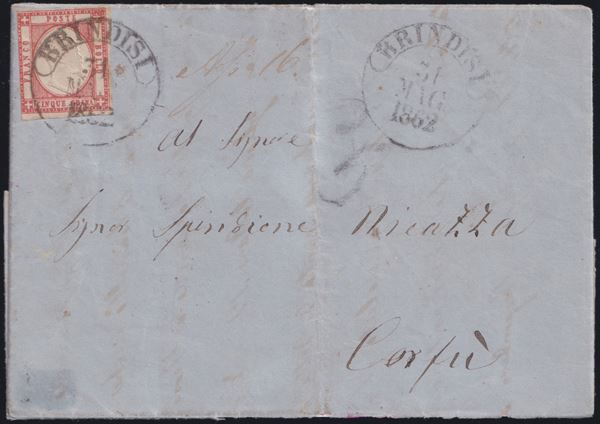 FRANCO
POSTA
CINQUE GRANA
BRINDISI
1862
BRINDISI
31
MAG
1862
Al Signore
Signor Spiridione Nicazza
Corfù